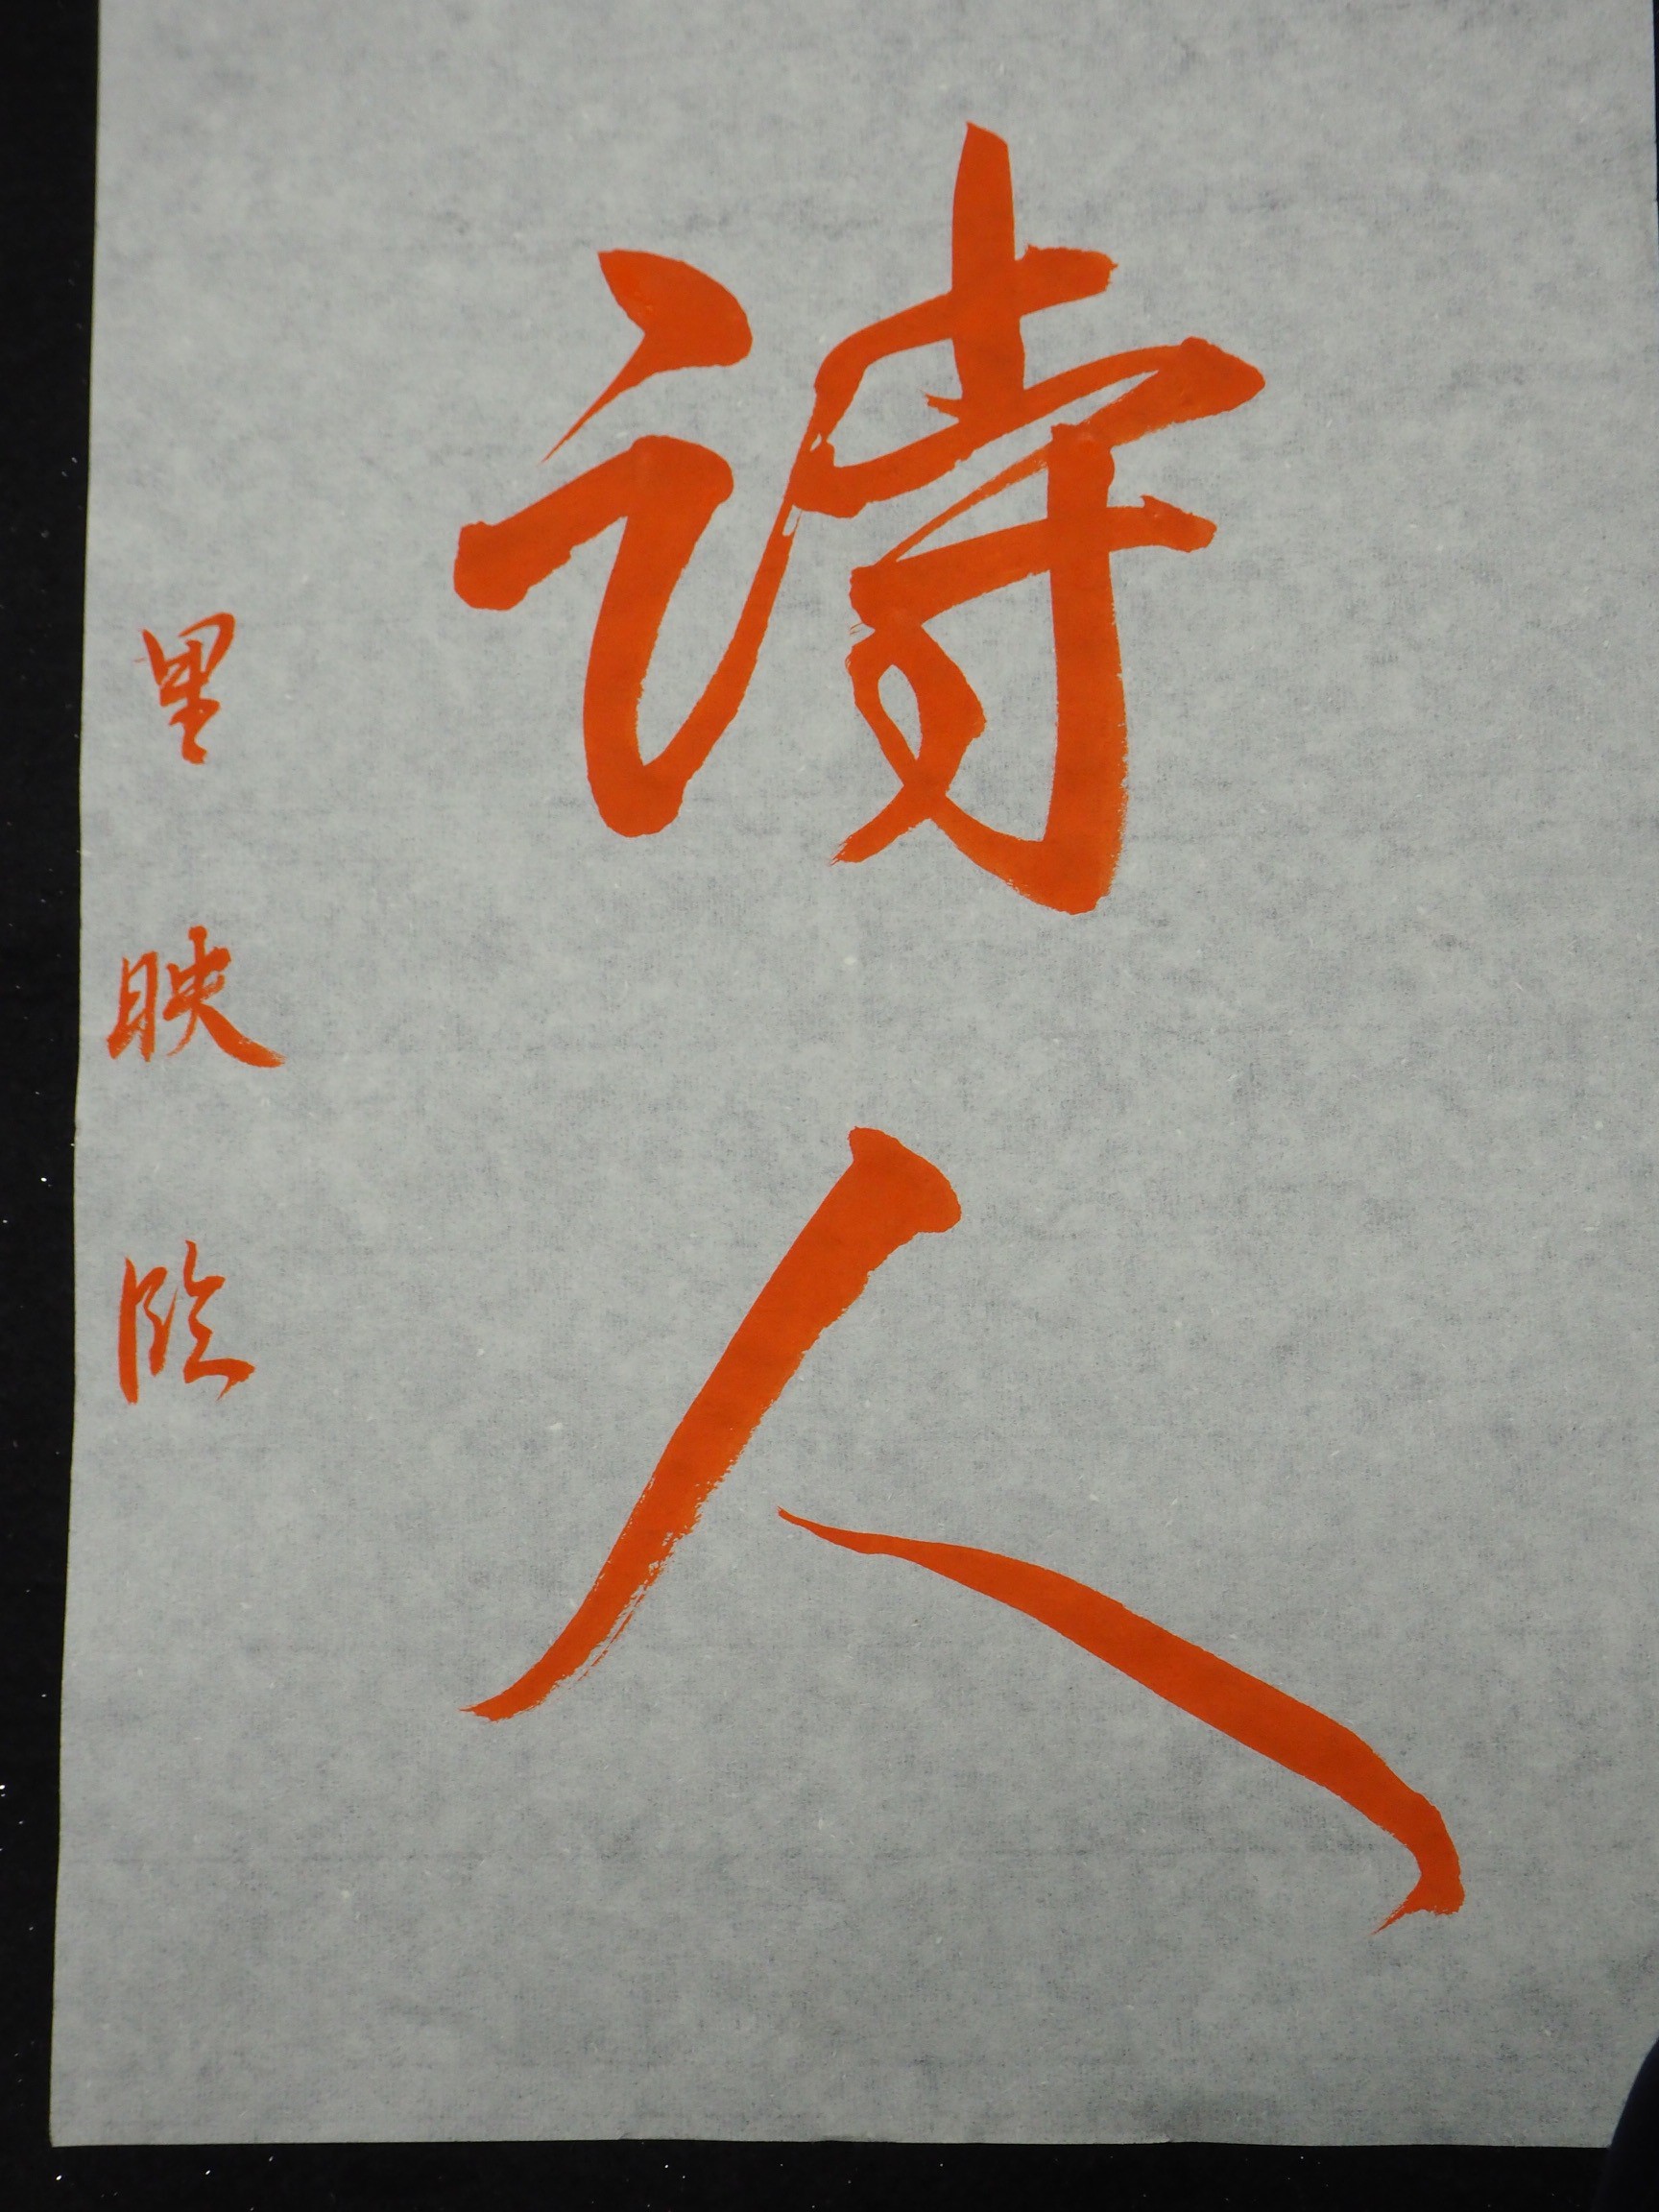 詩人
里映臨